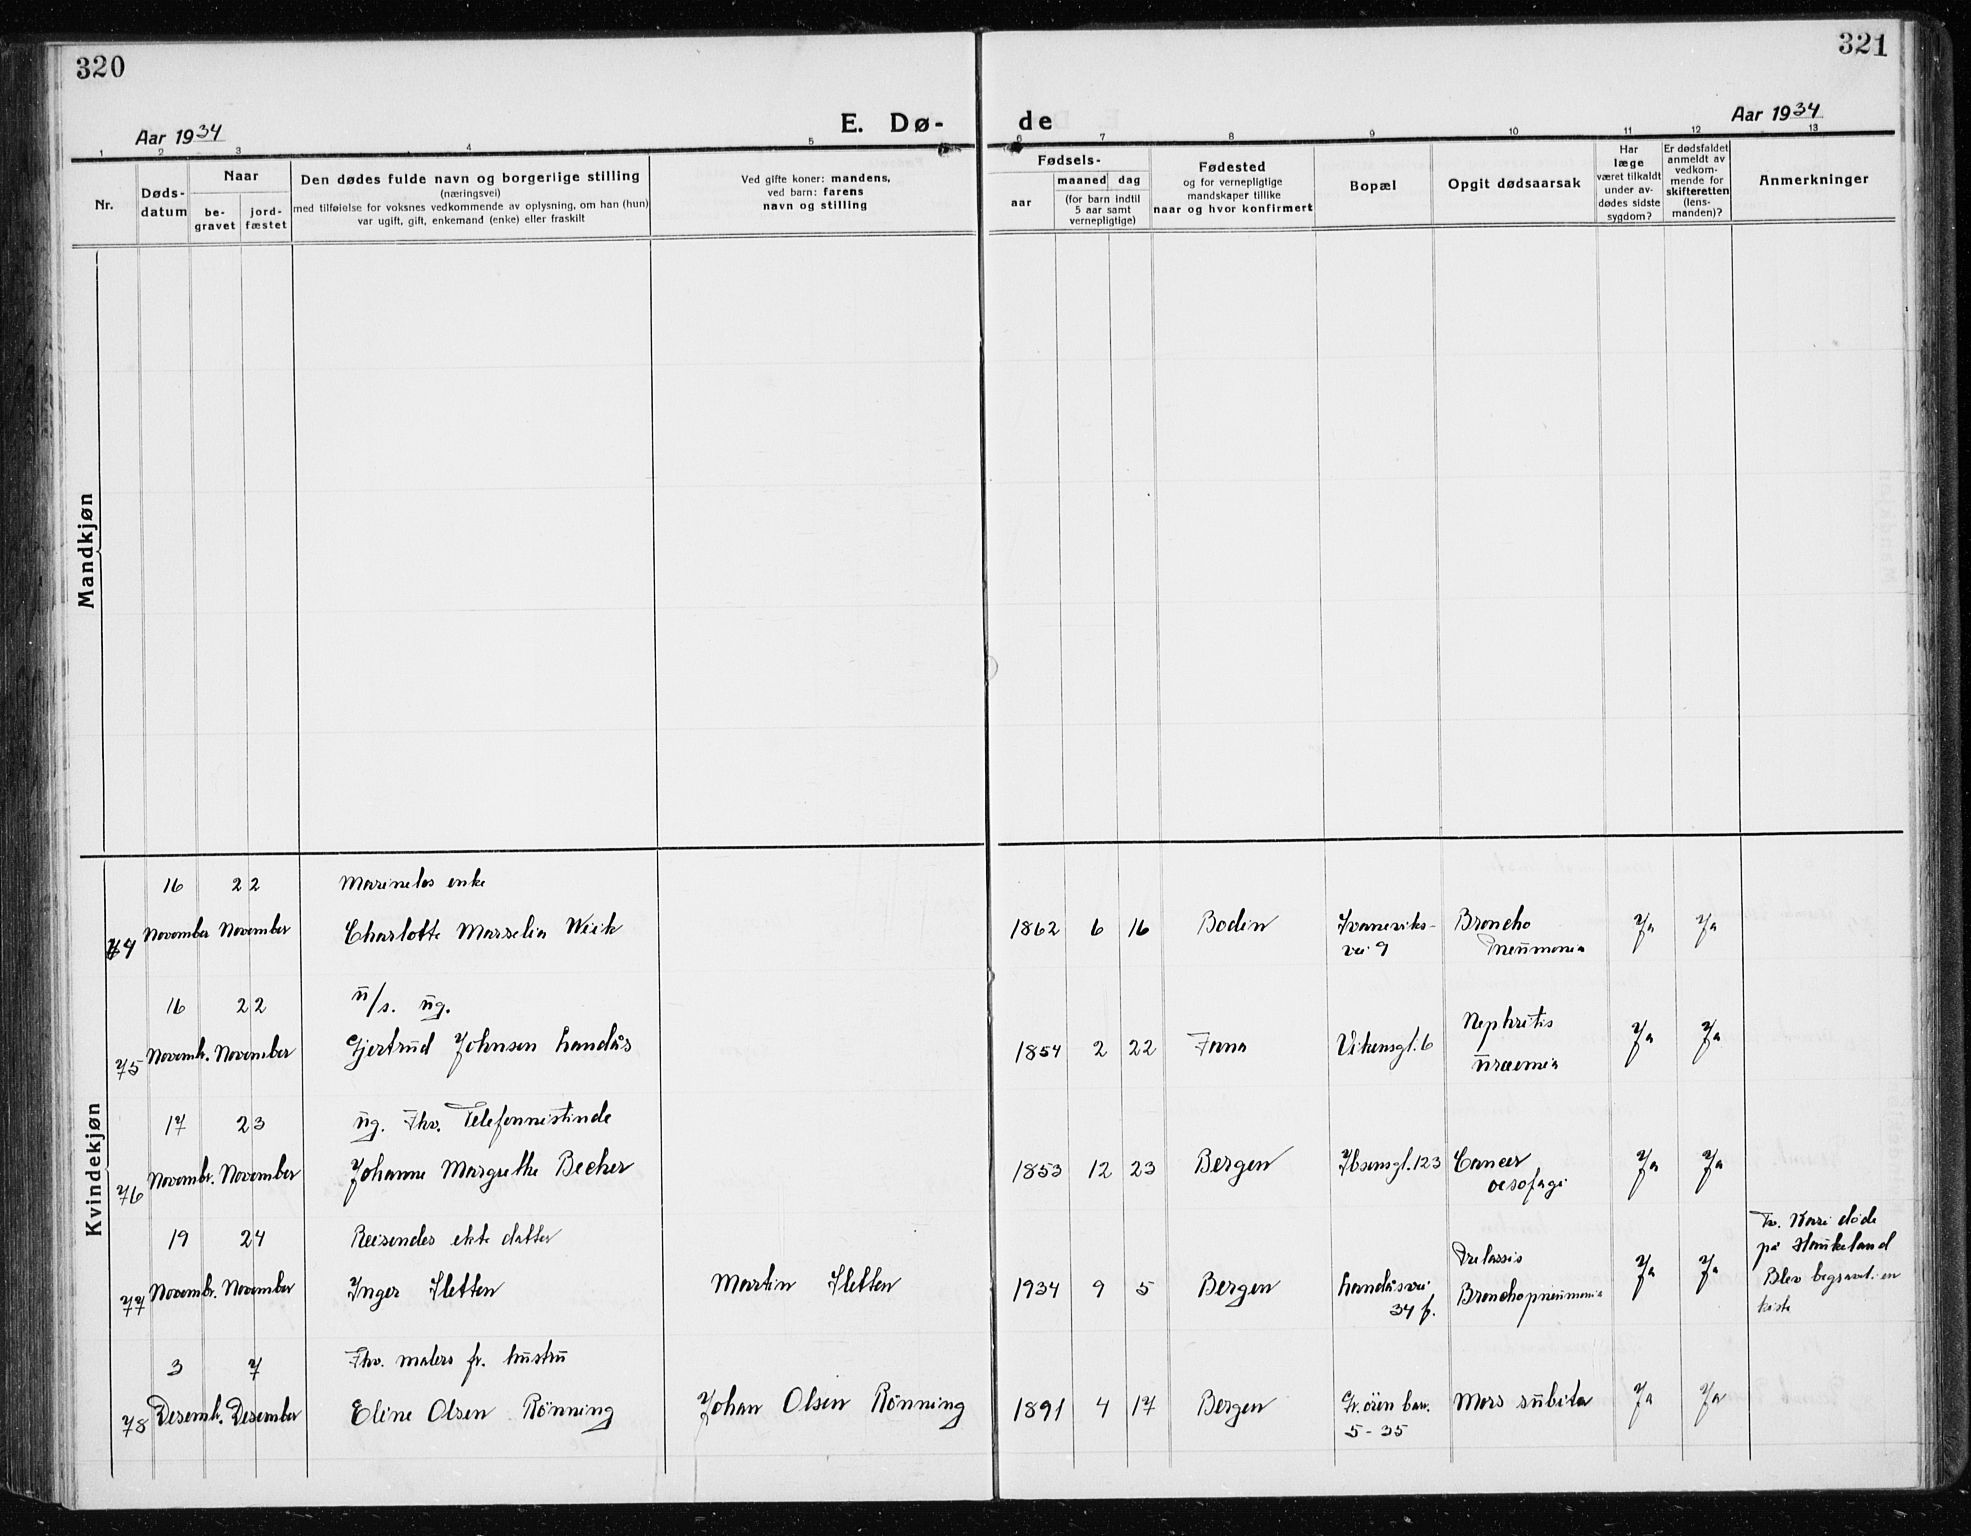 320
321
Aar 1934
E. Dø-
de
Aar 1934
1 2 3 4 5 6 7 8 9 10 11 12 13
Nr.
Døds-
datum
Naar
be-
gravet
jord-
fæstet
Den dødes fulde navn og borgerlige stilling
(næringsvei)
med tilføielse for voksnes vedkommende av oplysning, om han (hun)
var ugift, gift, enkemand (enke) eller fraskilt
Ved gifte koner: mandens,
ved barn: farens
navn og stilling
Fødsels-
aar
maaned dag
(for barn indtil
5 aar samt
vernepligtige)
Fødested
og for vernepligtige
mandskaper tillike
naar og hvor konfirmert
Bopæl
Opgit dødsaarsak
Har
læge
været tilkaldt
under av-
dødes sidste
sygdom?
Er dødsfaldet
anmeldt av
vedkom-
mende for
skifteretten
(lens-
manden)?
Anmerkninger
Mandkjøn
Kvindekjøn
16 22 enke
74 November November Charlotte Marselia Wiik 1862 6 16 Bodin Broncho Ja Ja
vei 9 Pneumonia
16 22 u/s. ug.
75 Novemb. November Gjertrud Johnsen Landås 1854 2 22 Fana Vikensgt. 6 Nephritis Ja Ja
uraemia
17 23 ug. Fhv. Telefonnistinde
76 Novembr. November Johanne Margrethe Becher 1853 12 23 Bergen Ibsensgt. 123 Cancer Ja Ja
oesofagi
19 24 Reisendes ekte datter
77 Novembr. November Inger Sletten Martin Sletten 1934 9 5 Bergen Landåsvei Bronchopneumonia Ja Ja
34 f.
Kari døde
på Haukeland
Blev begravet i en
kiste
3 7 Fhv. malers fr. hustru
78 Desemb. Desember Eline Olsen Rönning Johan Olsen Rönning 1891 4 17 Bergen Mors subita Ja Ja
5-35